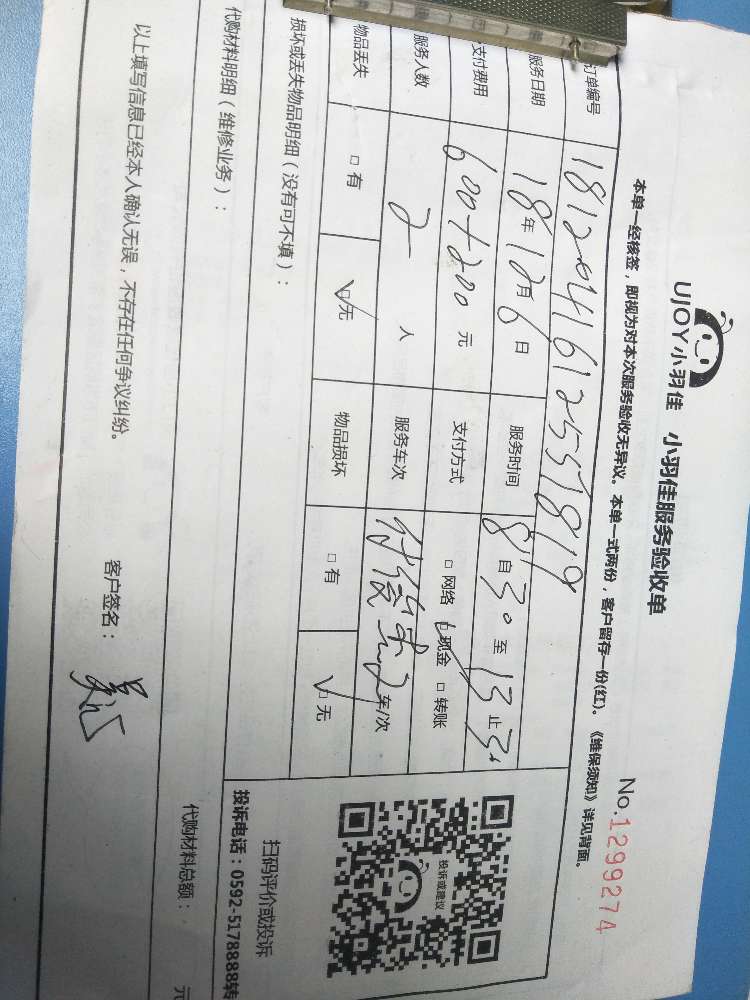 UJOY小羽佳 小羽佳服务验收单
No.1299274
本单一经核签，即视为对本次服务验收无异议。本单一式两份，客户留存一份(红)。《维保须知》详见背面。
订单编号 1812041612557819
服务日期 18年12月6日 服务时间 8自30至13止30
支付费用 600+200元 支付方式 □网络 ☑现金 □转账
服务人数 2人 服务车次 2车/次
物品丢失 □有 ☑无 物品损坏 □有 ☑无
损坏或丢失物品明细（没有可不填）：
投诉或建议
扫码评价或投诉
投诉电话：0592-5178888转
代购材料明细（维修业务）： 代购材料总额： 元
以上填写信息已经本人确认无误，不存在任何争议纠纷。 客户签名：